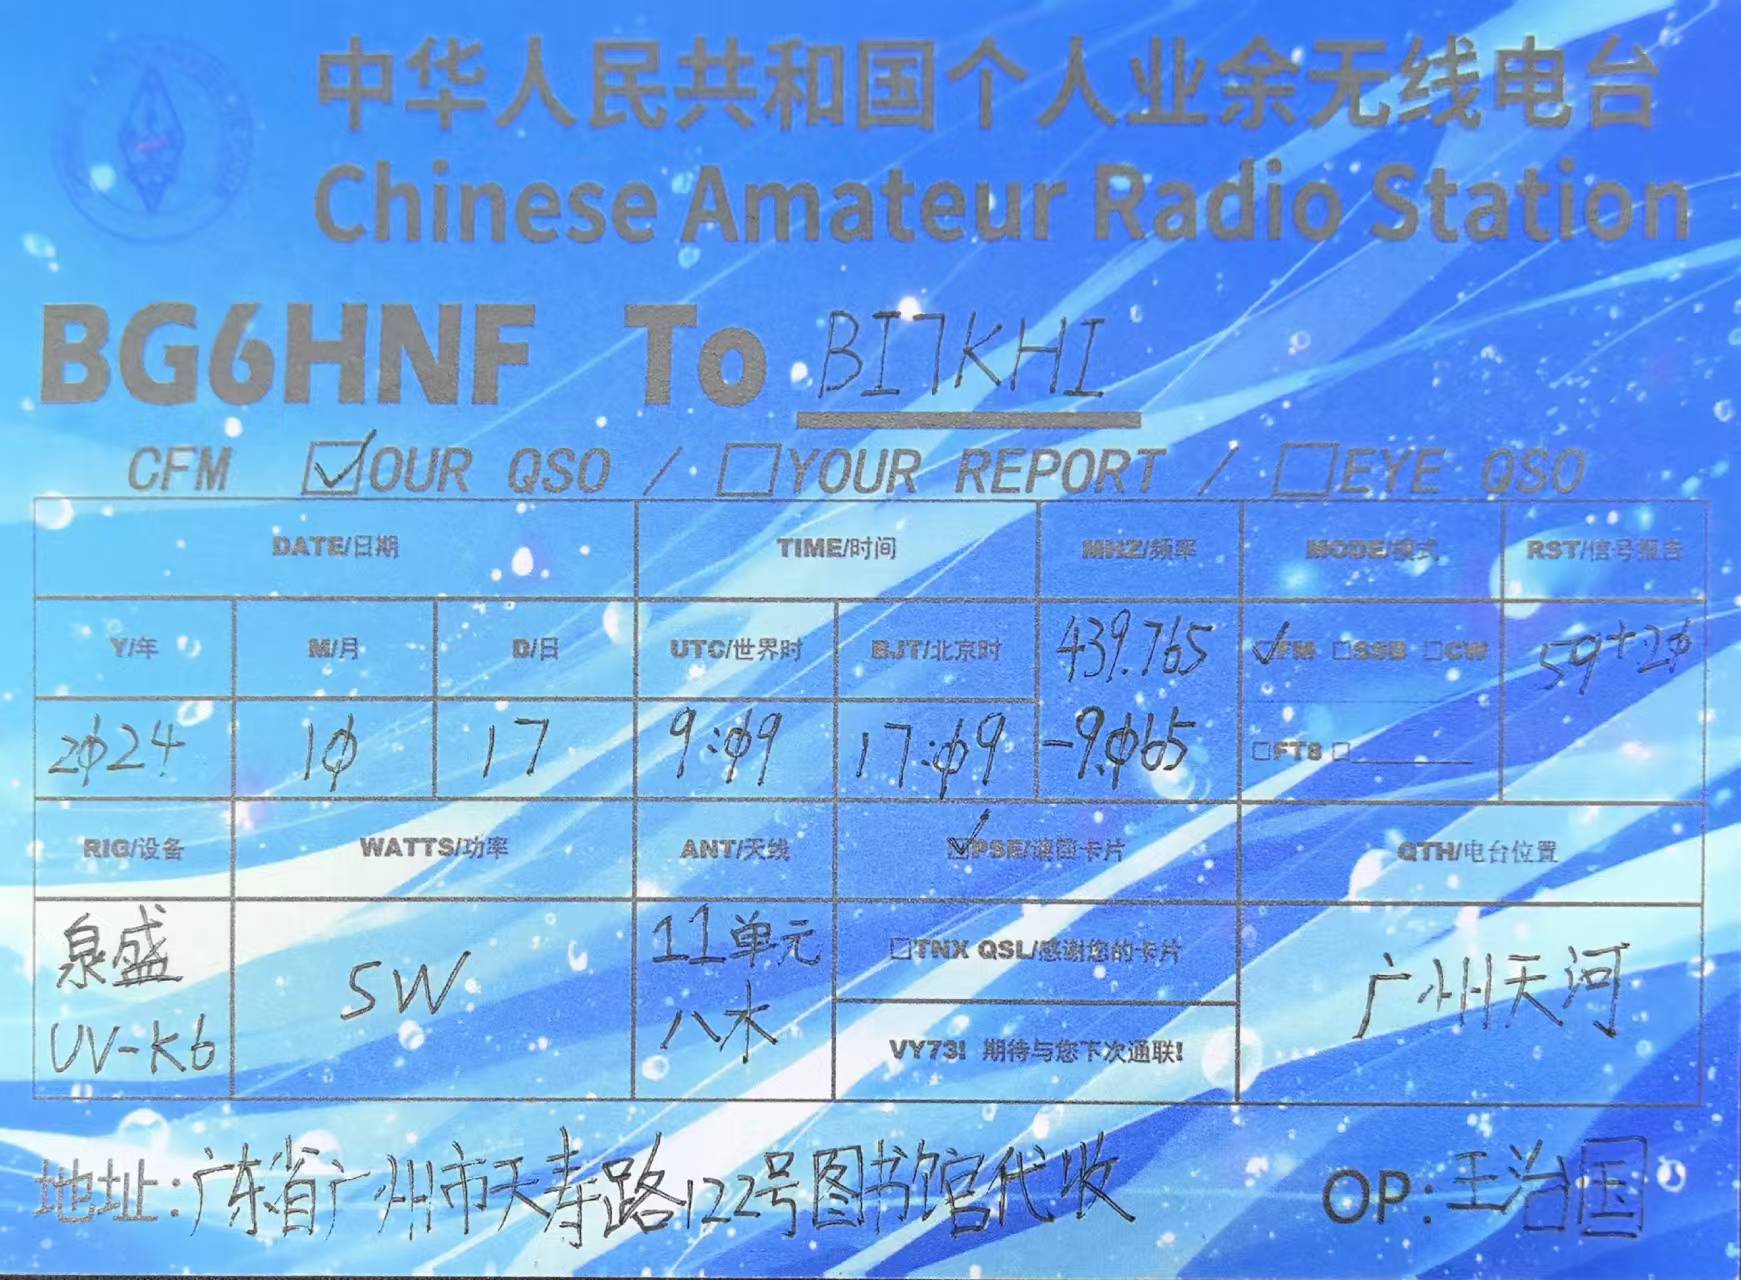 中华人民共和国个人业余无线电台
Chinese Amateur Radio Station
BG6HNF To BI7KHI
CFM ☑OUR QSO / □YOUR REPORT / □EYE QSO
DATE/日期 TIME/时间 MHZ/频率 MODE/模式 RST/信号报告
Y/年 M/月 D/日 UTC/世界时 BJT/北京时 439.765 ☑FM □SSB □CW 59+2Ø
2Ø24 1Ø 17 9:Ø9 17:Ø9 -9.Ø65 □FT8 □
RIG/设备 WATTS/功率 ANT/天线 ☑PSE/请回卡片 QTH/电台位置
泉盛 11单元 □TNX QSL/感谢您的卡片
UV-K6 5W 八木 VY73! 期待与您下次通联! 广州天河
地址:广东省广州市天寿路122号图书馆代收 OP:王治国